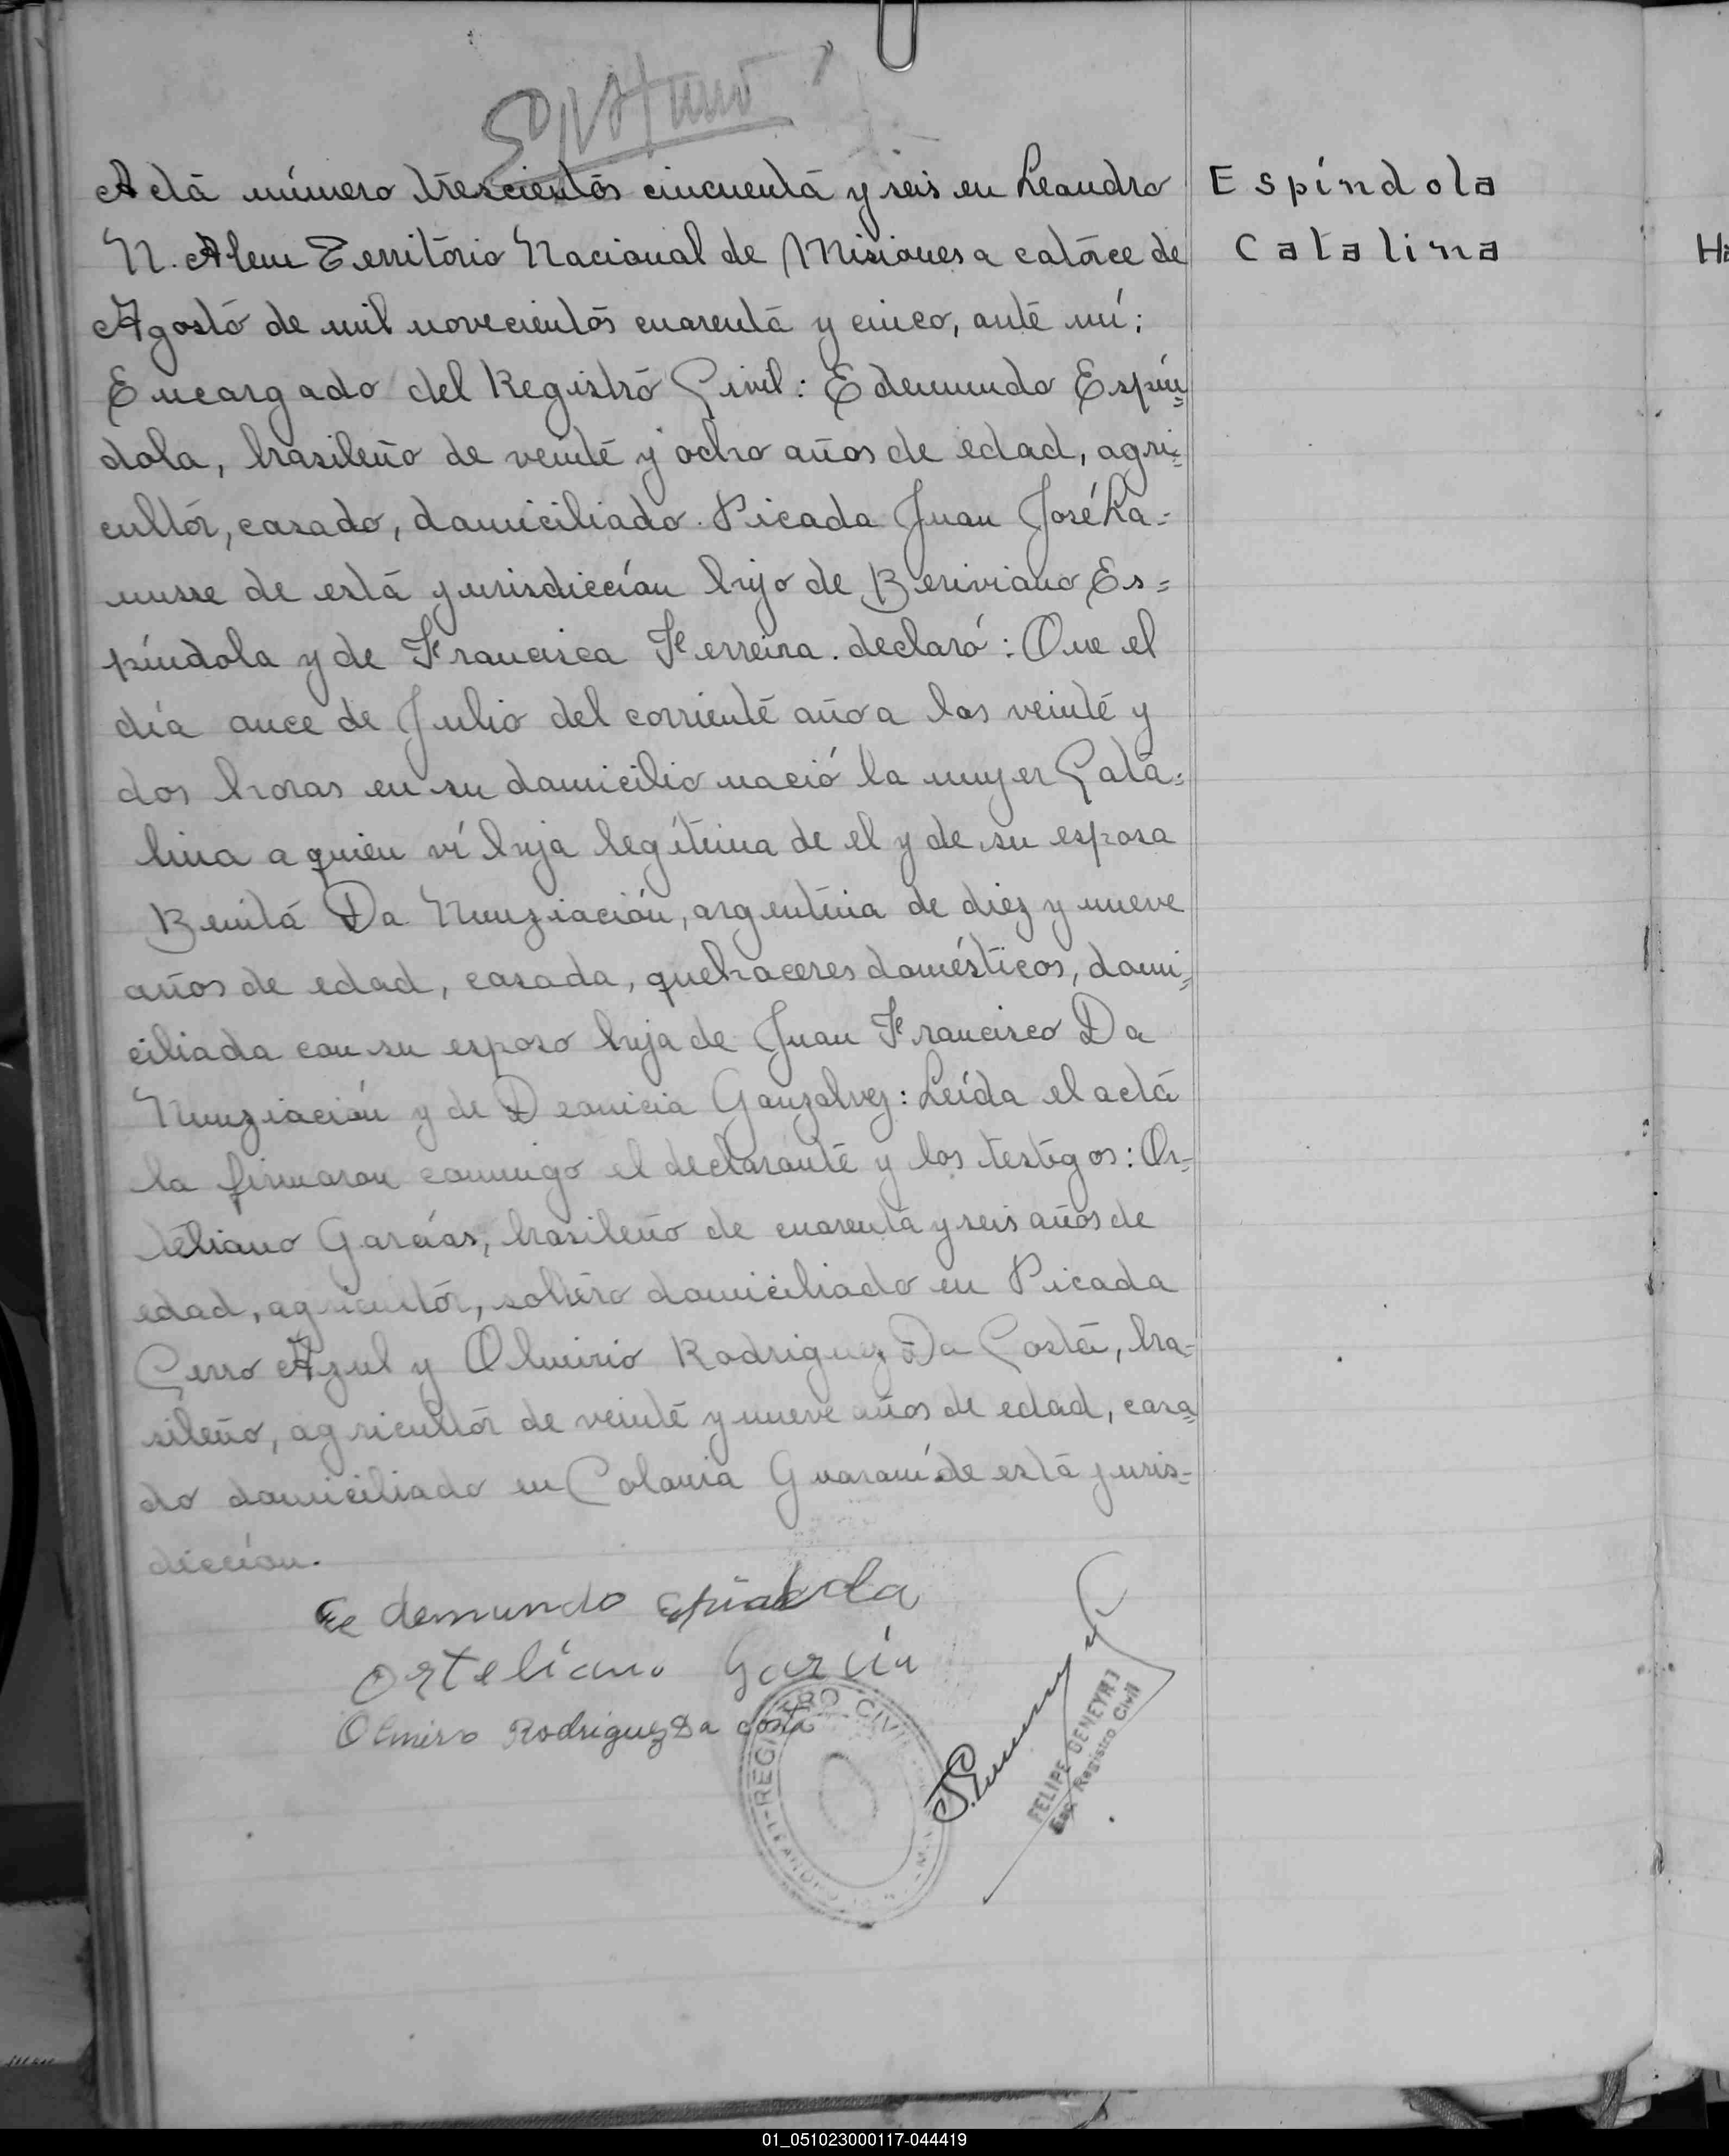 Acta número trescientos cincuenta y seis en Leandro
N. Alem Territorio Nacional de Misiones a catorce de
Agosto de mil novecientos cuarenta y cinco, ante mí:
Encargado del Registro Civil: Edemundo Espín=
dola, brasileño de veinte y ocho años de edad, agri=
cultor, casado, domiciliado Picada Juan José La=
nusse de esta jurisdicción hijo de Beriviano Es=
píndola y de Francisca Ferreira. declaró: Que el
día once de Julio del corriente año a las veinte y
dos horas en su domicilio nació la mujer Cata=
lina a quien ví hija legítima de el y de su esposa
Benita Da Nunziación, argentina de diez y nueve
años de edad, casada, quehaceres domésticos, domi=
ciliada con su esposo hija de Juan Francisco Da
Nunziación y de Deonicia Gonzalvez: Leída el acta
la firmaron conmigo el declarante y los testigos: Or=
teliano Garcías, brasileño de cuarenta y seis años de
edad, agricultor, soltero domiciliado en Picada
Cerro Azul y Olmirio Rodriguez Da Costa, bra=
sileño, agricultor de veinte y nueve años de edad, casa=
do domiciliado en Colonia Guaraní de esta juris=
dicción.
Edemundo Espindola
Orteliano García
Olmiro Rodriguez Da Costa
REGISTRO CIVIL
FELIPE DENEYRI
Enc. Registro Civil
Espíndola
Catalina
01_051023000117-044419